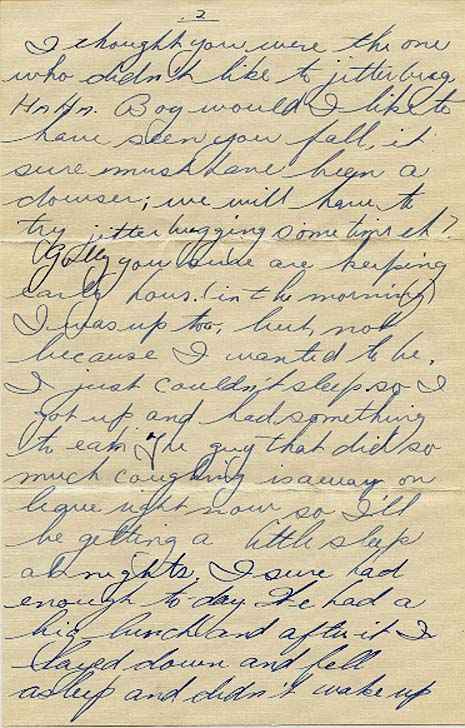 2
I thought you were the one
who didn't like to jitterbug
HA HA. Boy would I like to
have seen you fall, it
sure must have been a
dowser; we will have to
try jitterbugging sometime eh?
Golly you sure are keeping
early hours. (in the morning)
I was up too, but, not
because I wanted to be.
I just couldn't sleep. so I
got up and had something
to eat. The guy that did so
much coughing is away on
leave right now so I'll
be getting a little sleep
at nights. I sure had
enough to day. We had a
big lunch and after it I
layed down and fell
asleep and didn't wake up